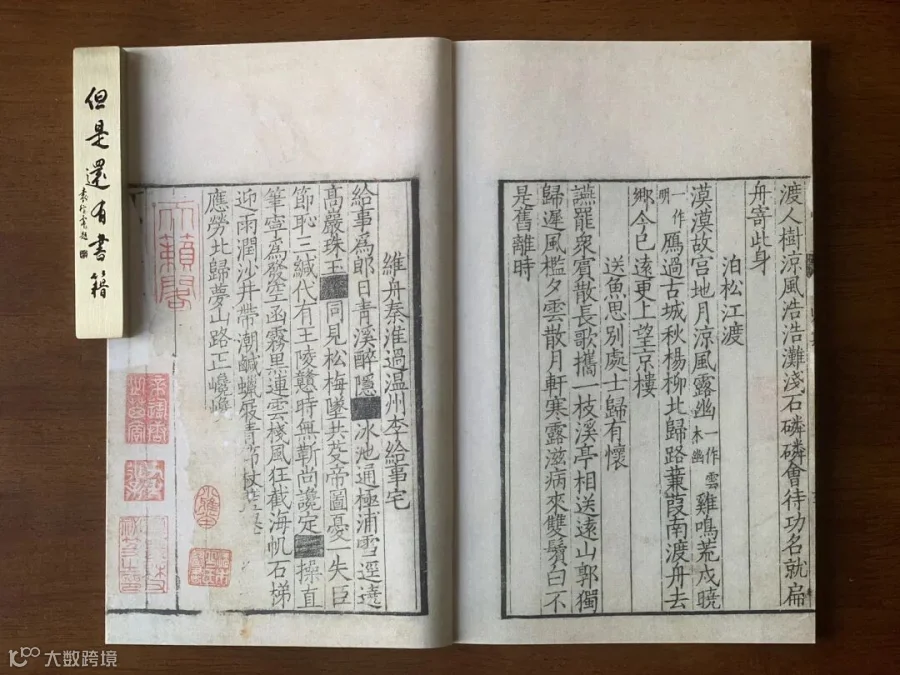 渡人樹涼風浩浩灘淺石磷磷會待功名就扁
舟寄此身
泊松江渡
漠漠故宮地月涼風露幽一作雲木幽雞鳴荒戍曉
一作明鴈過古城秋楊柳北歸路蒹葭南渡舟去
鄉今已遠更上望京樓
送魚思別處士歸有懷
讌罷衆賓散長歌攜一枝溪亭相送遠山郭獨
歸遲風檻夕雲散月軒寒露滋病來雙鬢白不
是舊離時
維舟秦淮過温州李給事宅
給事爲郎日青溪醉隱冰池通極浦雪逕達
高巖珠玉同見松梅墜共帝圖憂一失臣
節恥三緘代有王陵戇時無靳尚讒定操直
筆寧爲發空函霧黒連雲棧風狂截海帆石梯
迎雨潤沙井帶潮鹹蠟屐青
應勞北歸夢山路正巉巉
天籟閣
但是還有書籍
大数跨境